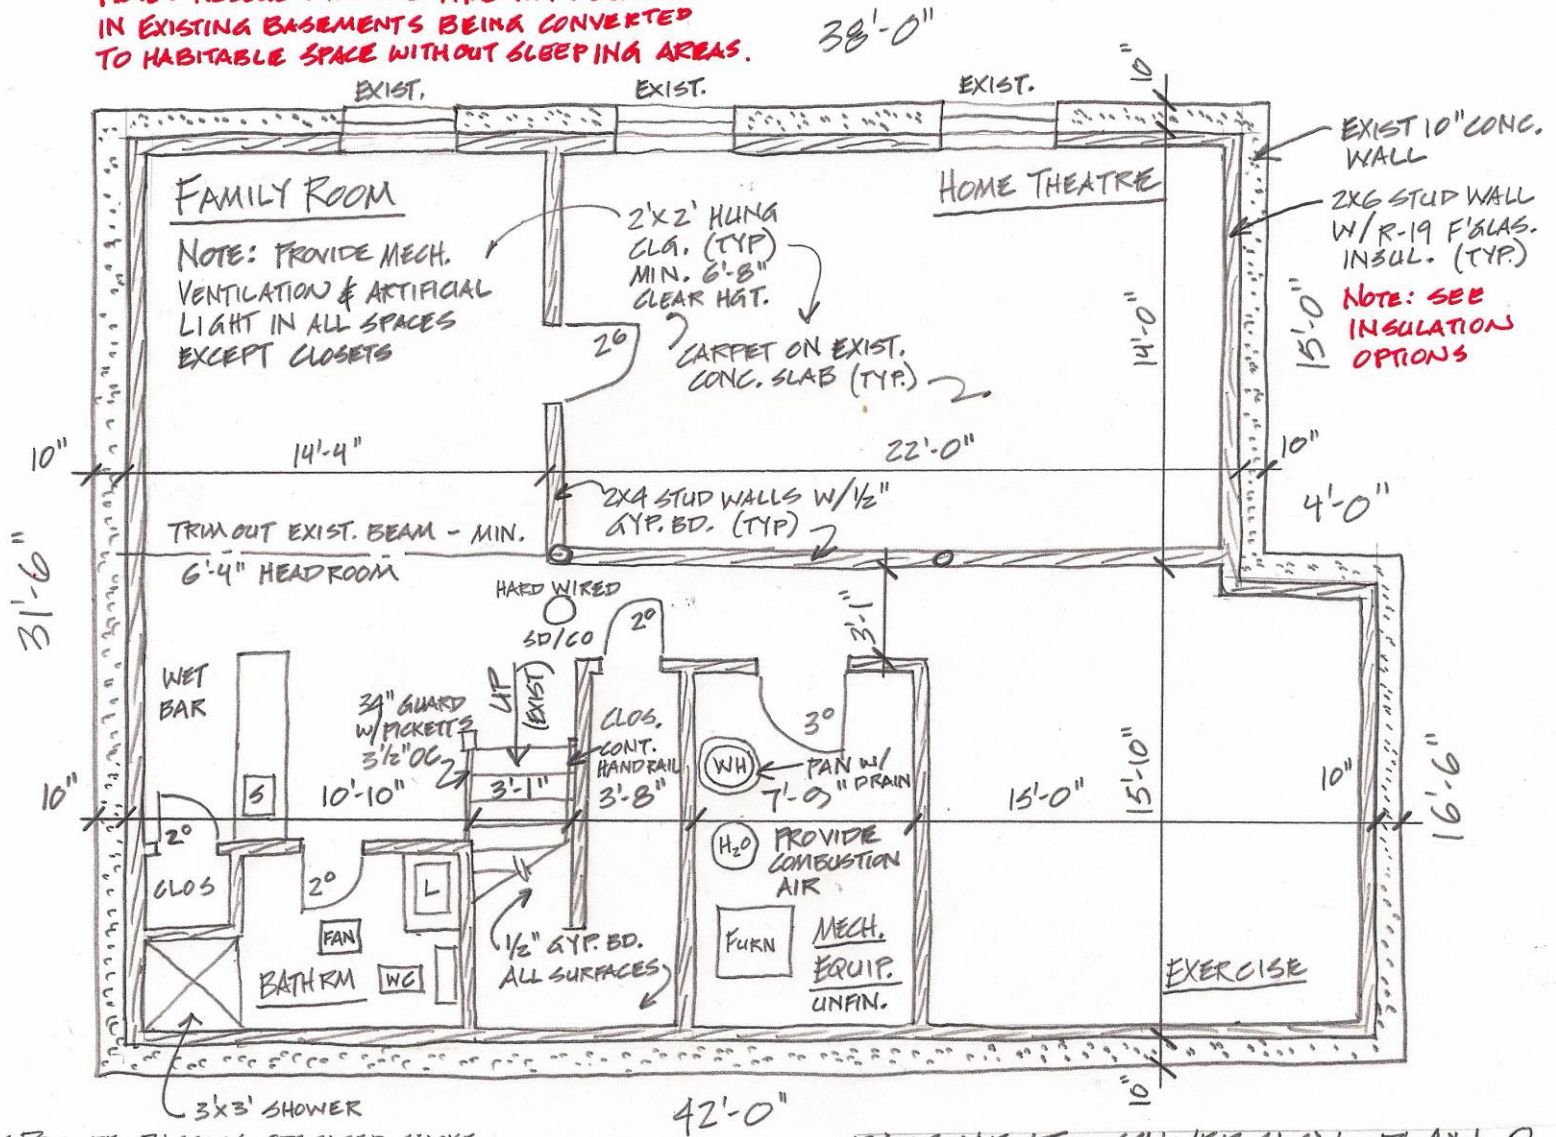 IN EXISTING BASEMENTS BEING CONVERTED
TO HABITABLE SPACE WITHOUT SLEEPING AREAS.
38'-0"
10"
EXIST.
EXIST.
EXIST.
EXIST 10" CONC.
WALL
2X6 STUD WALL
W/R-19 F'GLAS.
INSUL. (TYP.)
NOTE: SEE
INSULATION
OPTIONS
FAMILY ROOM
NOTE: PROVIDE MECH.
VENTILATION & ARTIFICIAL
LIGHT IN ALL SPACES
EXCEPT CLOSETS
2'X2' HUNG
CLG. (TYP)
MIN. 6'-8"
CLEAR HGT.
HOME THEATRE
26
CARPET ON EXIST.
CONC. SLAB (TYP.)
14'-0"
15'-0"
10"
14'-4"
22'-0"
10"
4'-0"
2X4 STUD WALLS W/1/2"
GYP. BD. (TYP)
TRIM OUT EXIST. BEAM - MIN.
6'-4" HEADROOM
31'-6"
HARD WIRED
SD/CO
20
3'-1"
WET
BAR
34" GUARD
W/PICKETTS
3 1/2" OC
UP
(EXIST)
CLOS.
CONT.
HANDRAIL
3'-8"
30
WH
PAN W/
DRAIN
10"
S
10'-10"
3'-1"
15'-0"
15'-10"
10"
16'-6"
20
CLOS
20
L
H2O
PROVIDE
COMBUSTION
AIR
FAN
BATHRM
WC
1/2" GYP. BD.
ALL SURFACES
FURN
MECH.
EQUIP.
UNFIN.
EXERCISE
3'X3' SHOWER
42'-0"
10"